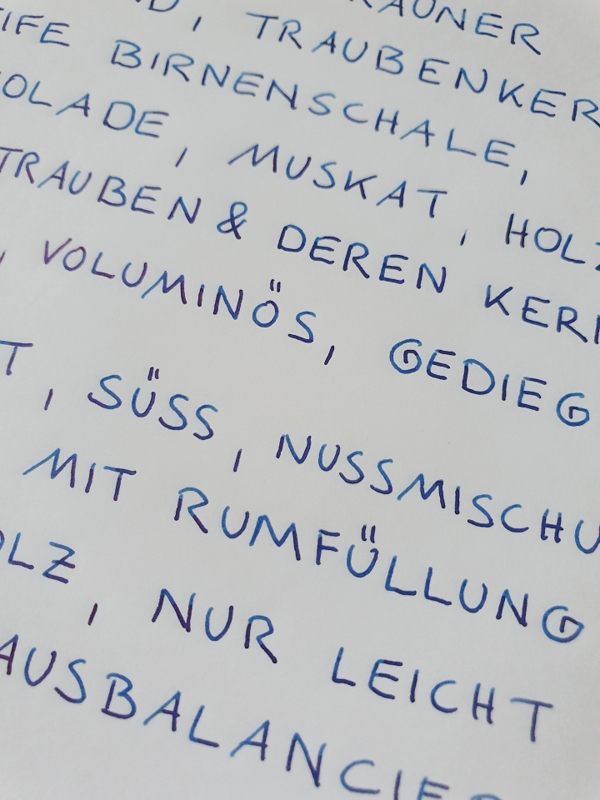 , TRAUBENKER
IFE BIRNENSCHALE,
OLADE, MUSKAT, HOLZ
TRAUBEN & DEREN KER
, VOLUMINÖS, GEDIEG
T, SÜSS, NUSSMISCHU
MIT RUMFÜLLUNG
OLZ, NUR LEICHT
AUSBALANCIE